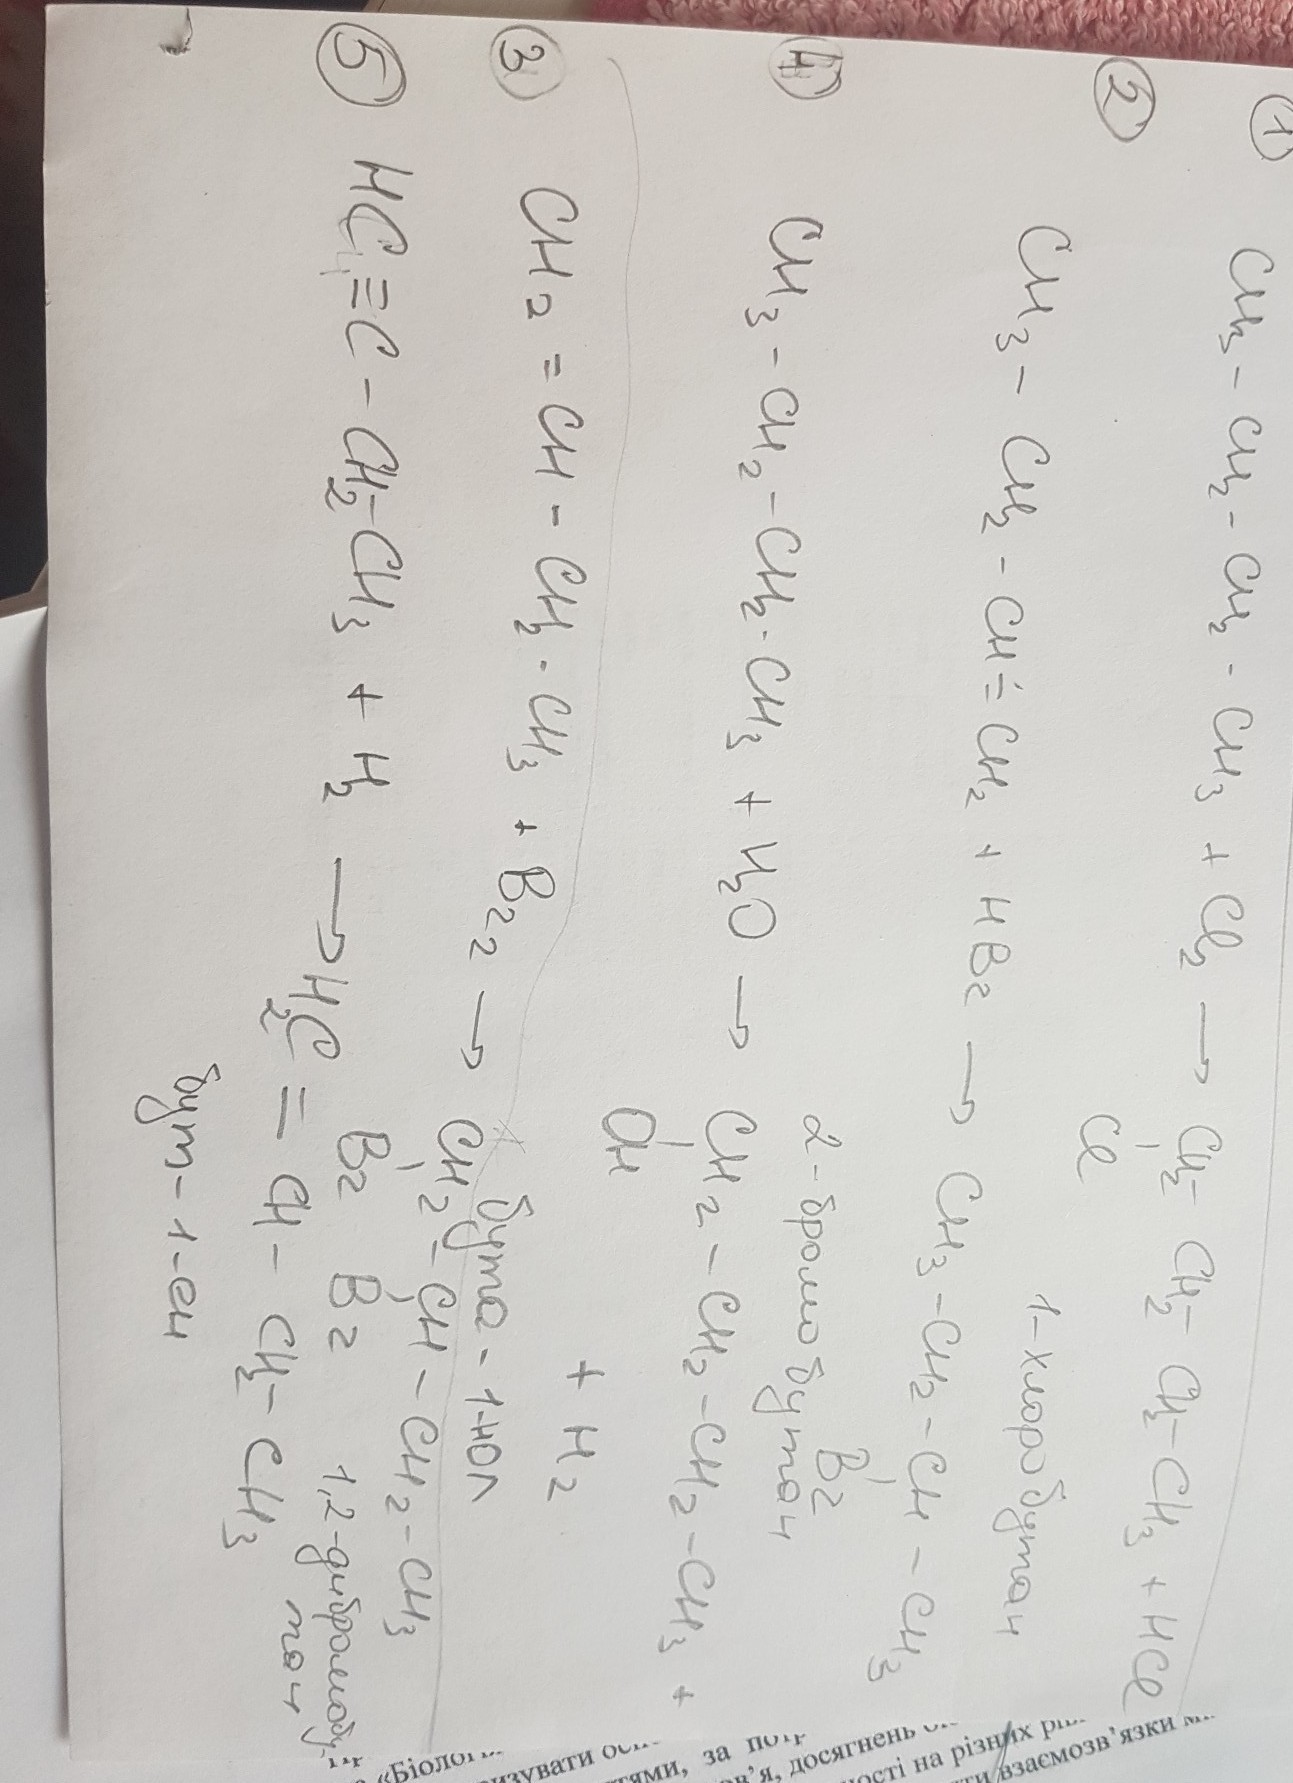 ① CH3 - CH2 - CH2 - CH3 + Cl2 → CH2 - CH2 - CH2 - CH3 + HCl
Cl
1-хлоробутан
② CH3 - CH2 - CH = CH2 + HBr → CH3 - CH2 - CH - CH3
Br
2-бромобутан
④ CH3 - CH2 - CH2 - CH3 + H2O → CH2 - CH2 - CH2 - CH3 +
OH
+ H2
бута-1-нол
③ CH2 = CH - CH2 - CH3 + Br2 → CH2 - CH - CH2 - CH3
Br Br
1,2-дибромобу
тан
⑤ HC ≡ C - CH2 - CH3 + H2 → H2C = CH - CH2 - CH3
бут-1-ен
«Біологі
ризувати осн
тями, за потр
ов'я, досягнень
ності на різних рів
ти взаємозв'язки м